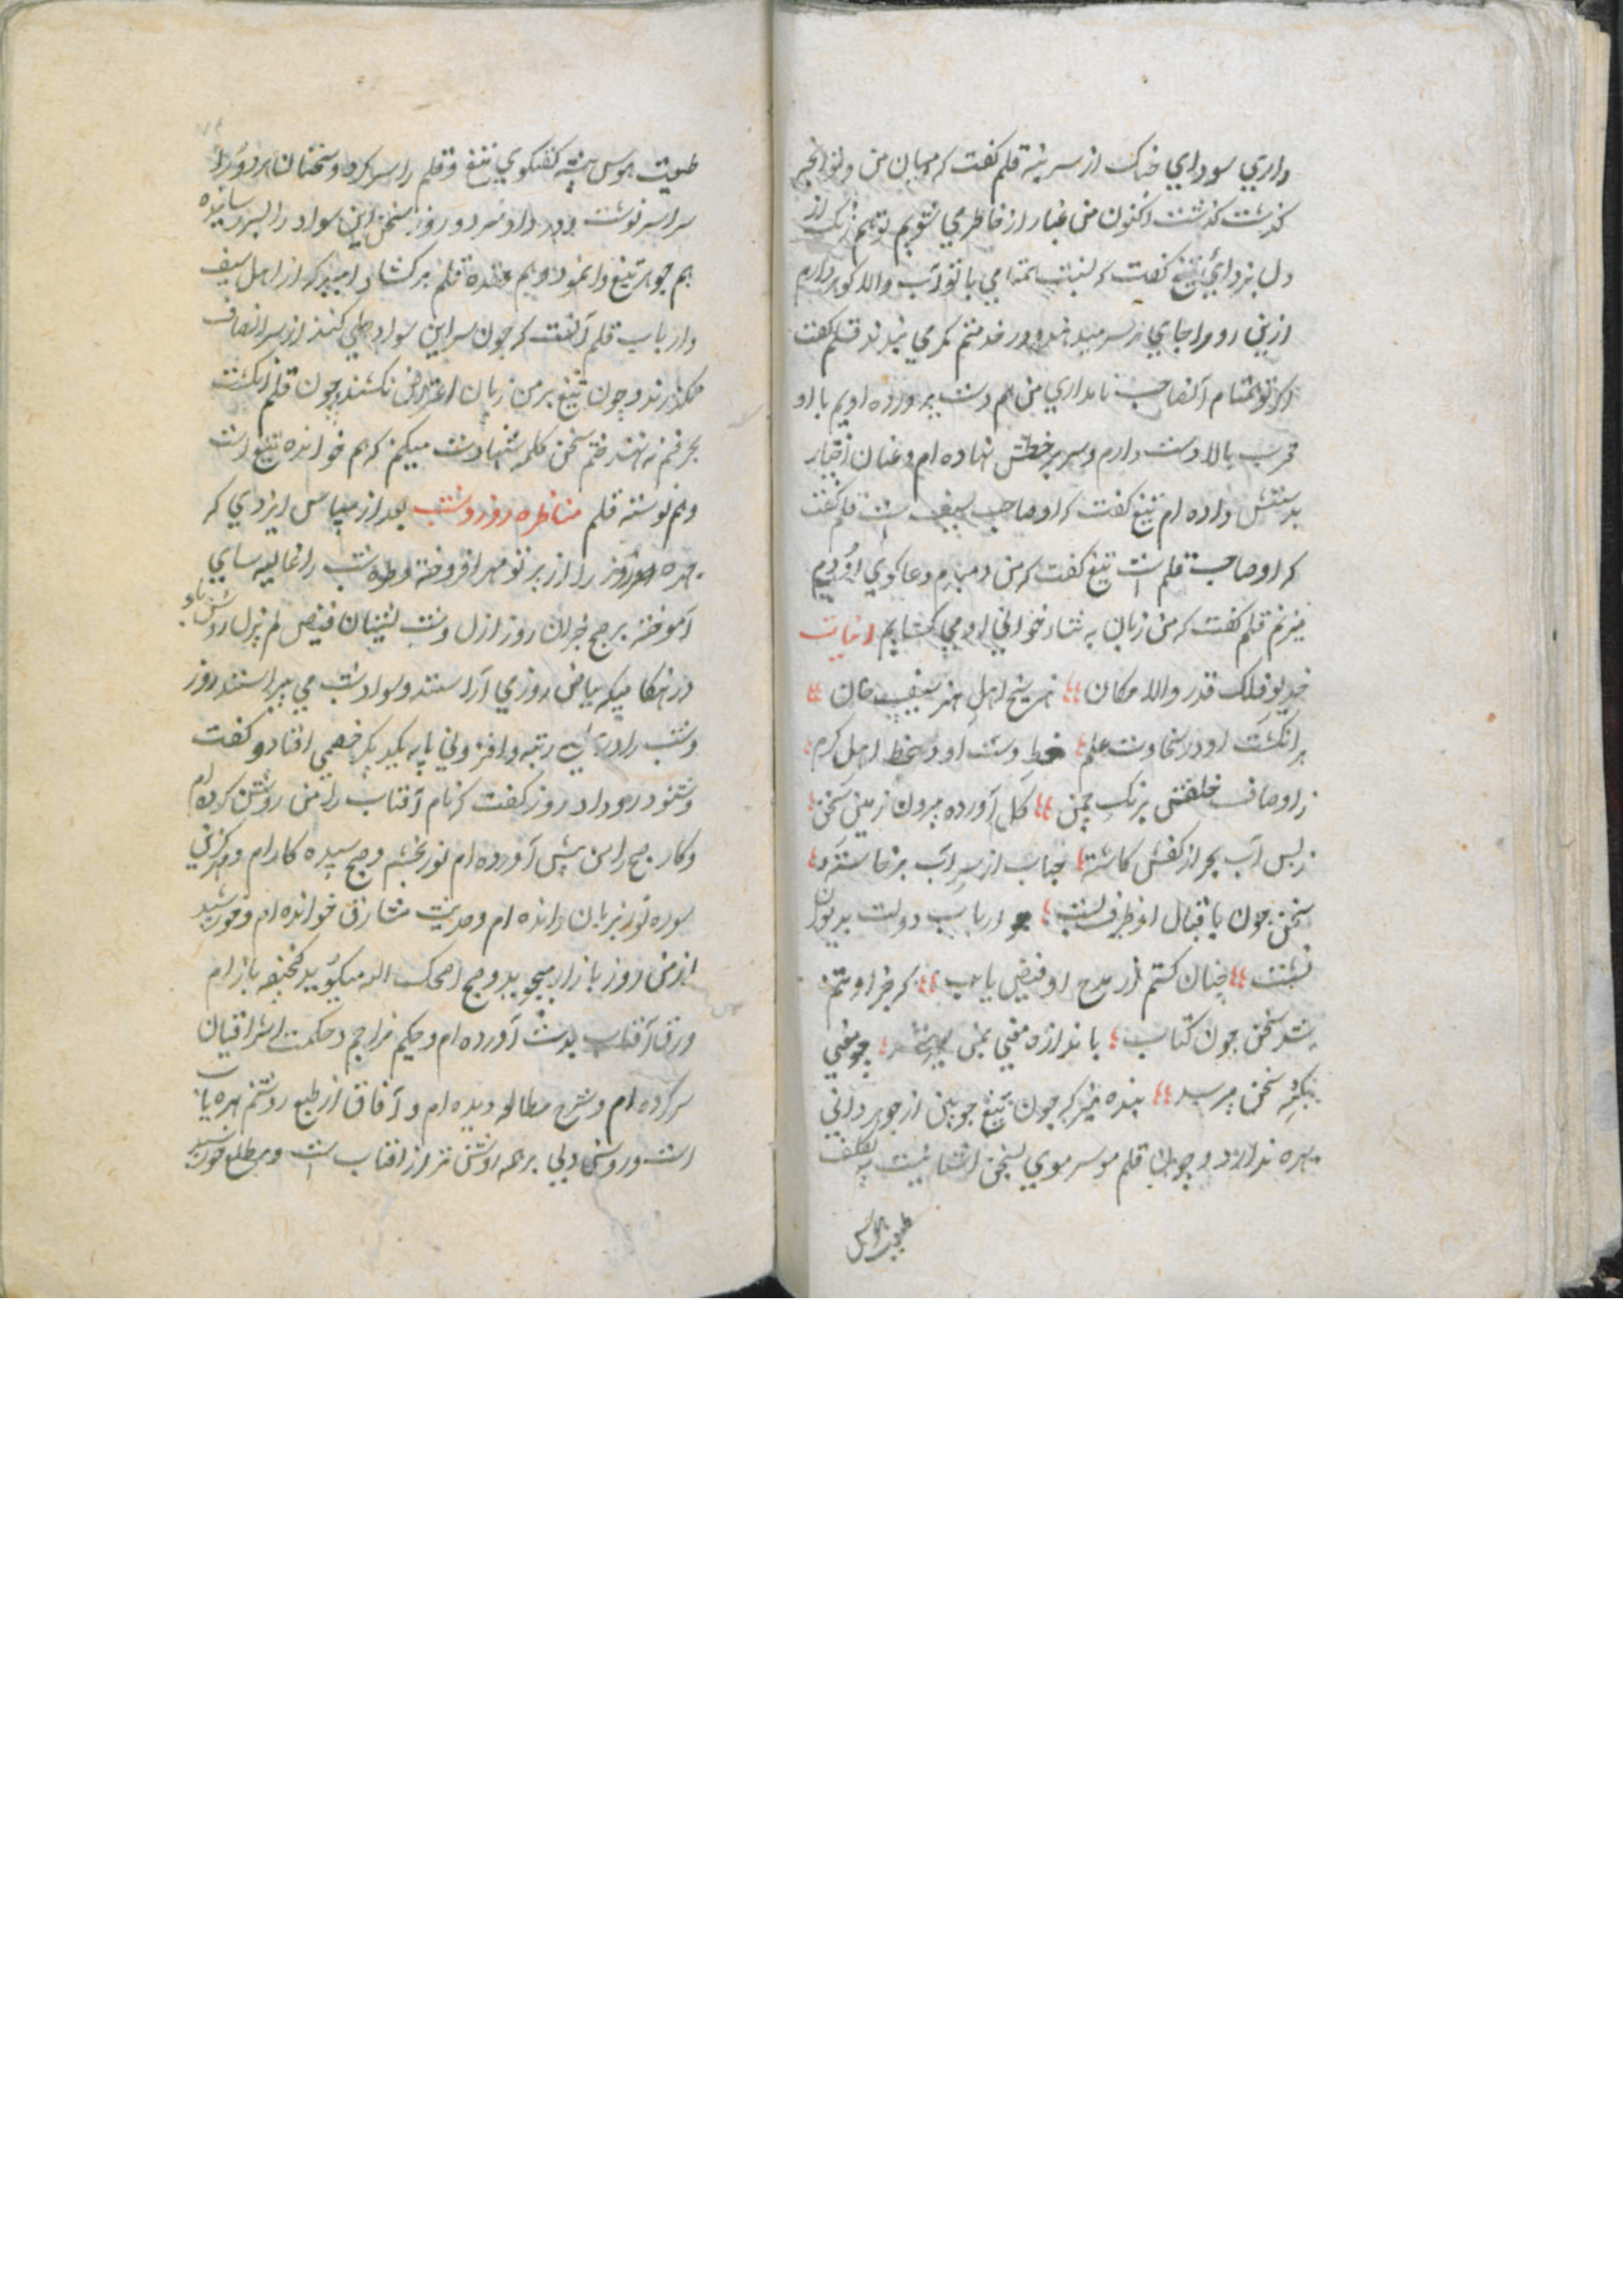 داري سوداي خنک از سر بنه قلم کفت که میان من و تو انچه
کذشت کذشت اکنون من غبار از خاطر مي شویم تو هم زنک از
دل بزداي تیغ کفت که نسبت تمامي با تو آب والا کوهر دارم
ازین رو مرا جاي بر سر میدهند و در خدمتم کمر مي بندند قلم کفت
اکر تو همنام آنصاحب نامداري من هم دست پرورده اویم با او
قرب بالا دست دارم و سر بر خطش نهاده ام و عنان اختیار
بدستش داده ام تیغ کفت که او صاحب سیف است قلم کفت
که او صاحب قلم است تیغ کفت که من دمبدم دعا کوي او دم
میزنم قلم کفت که من زبان به ثناء خواني او مي کشایم ابیات
خدیو فلک قدر والا مکان هنر سنج اهل هنر سیف خان
هر انکشت او در سخاوت علم خط دست او دستخط اهل کرم
ز اوصاف خلقش برنک چمن کل آورده بیرون زمین سخن
ز بس آب بحر از کفش کاسته حباب از سر آب برخاسته
سخن چون باقبال او طرف بست ارباب دولت بدیوان
نشست چنان کشتم از مدح او فیض یاب که جزاو
شد سخن چون کتاب باندازه معني بمن چو معني
سخن میرسد بنده نیز که چون تیغ چوبین از جوهر داني
بهره ندارد و چون قلم مو سر موي بسخن آشنا نیست به تکلف
طبیعت هوس
طبیعت هوس پیشه کفتکوي تیغ و قلم را سر کرد و سخنان هر دو را
سراسر نوشت و داد سر دو روز سخن این سواد را بسر رسانیده
هم جوهر تیغ وا نمود و هم عقده قلم بر کشاد امید که از اهل سیف
و ارباب قلم آنست که چون سر این سواد طي کنند از سر انصاف
نکذرند و چون تیغ بر من زبان اعتراض نکشند و چون قلم انکشت
بحرفم ننهند ختم سخن کلمه شهادت میکنم که هم خوانده تیغ است
و هم نوشته قلم مناظره روز و شب بعد از سپاس ایزدي که
چهره روز را از پرتو مهر افروخته و طره شب را غالیه سایي
آموخته بر صبح خیزان روز ازل و شب نشینان فیض لم یزل روشن باد
در هنکامیکه بیاض روز مي آراستند و سواد شب مي پیراستند روز
و شب را در رتبه و افزوني پایه با یکدیکر خصمي افتاد و کفت
و شنود رو داد روز کفت که نام آفتاب را من روشن کرده ام
و کار صبح را من پیش آورده ام نور بخشم و صبح سپیده کار ام و
سوره نور بزبان رانده ام و حدیث مشارق خوانده ام و خورشید
از من روز بازار میجوید و صبح اصبحک الله میکوید کنجفه باز ام
ورق آفتاب بدست آورده ام و حکیم مزاجم و حکمت اشراقیان
سر کرده ام و شرح مطالع دیده ام و آفاق از طبع روشنم بهره یاب
است و روشن دلي بر همه روشن تر از آفتاب است و مطلع خورشید